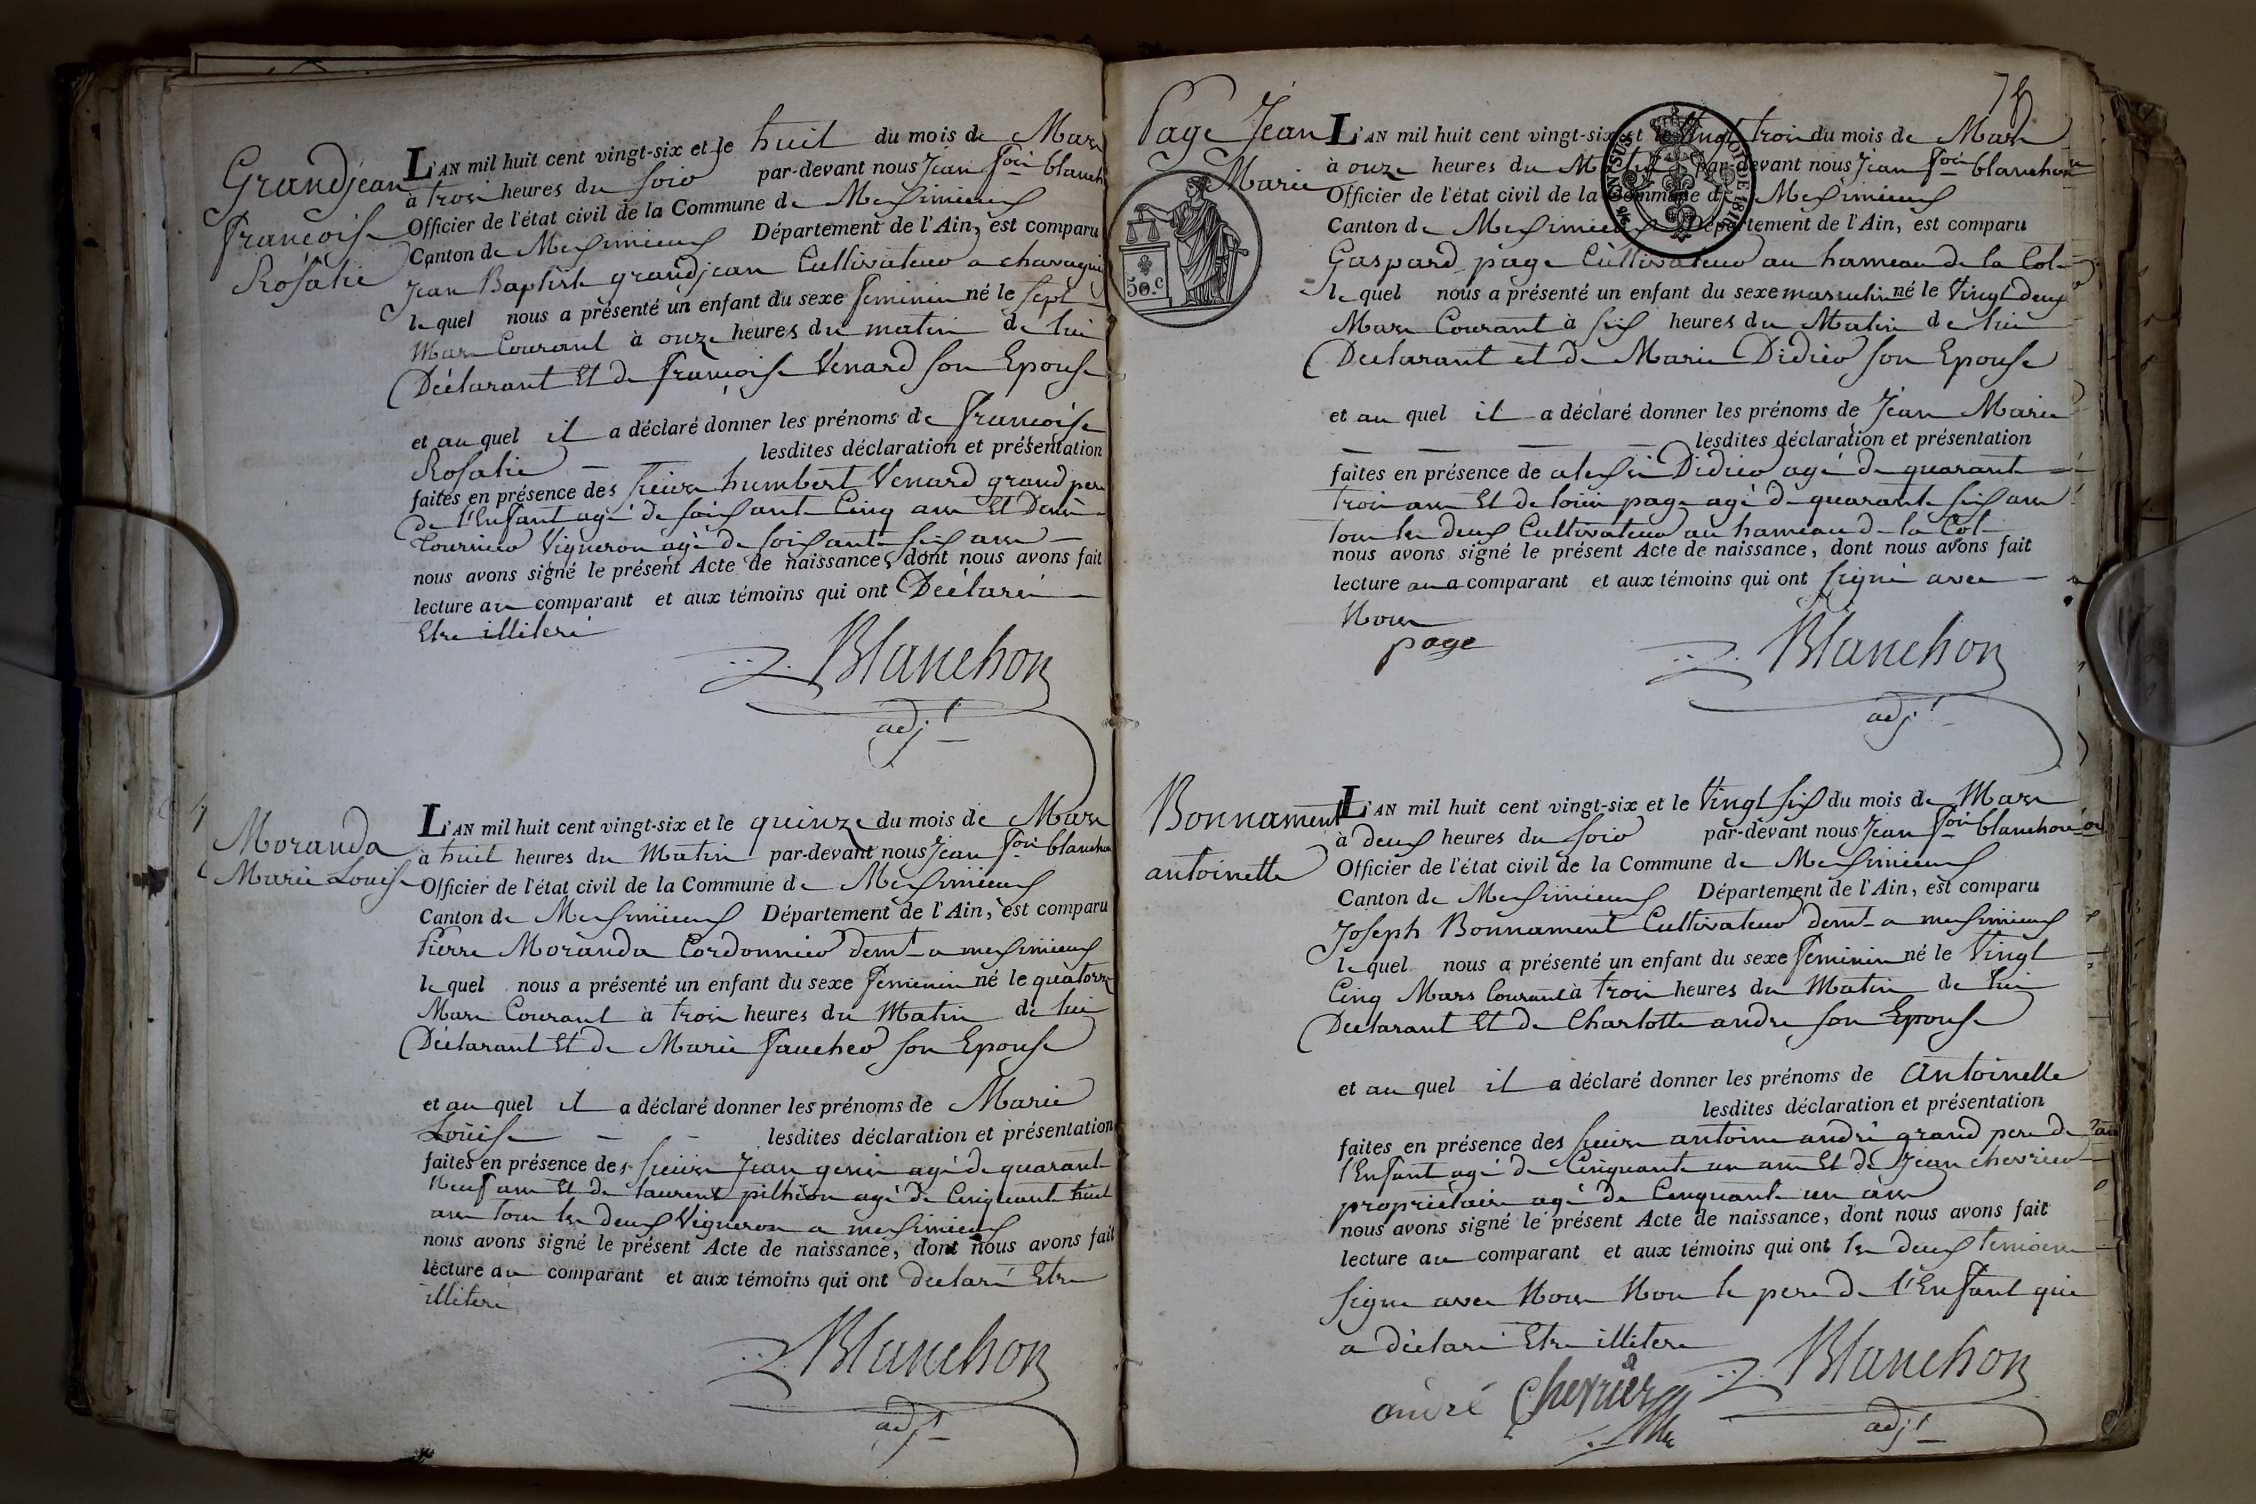 Grandjean
françoise
Rosalie
L'AN mil huit cent vingt-six et le huit du mois de Mars
à trois heures du soir par-devant nous Jean fois blanch
Officier de l'état civil de la Commune de Meximieux
Canton de Meximieux Département de l'Ain, est comparu
Jean Baptiste grandjean Cultivateur a
le quel nous a présenté un enfant du sexe feminin né le sept
Mars Courant à onze heures du matin de lui
Déclarant Et de françoise Venard son Epouse
et au quel il a déclaré donner les prénoms de françoise
Rosalie — lesdites déclaration et présentation
faites en présence des sieurs humbert Venard grand pere
de l'Enfant agé de soixante Cinq ans Et Denis
tournier Vigneron agé de soixante six ans —
nous avons signé le présent Acte de naissance, dont nous avons fait
lecture au comparant et aux témoins qui ont Déclaré —
Etre illiteré
Blanchon
adjt
Moranda
Marie Louise
L'AN mil huit cent vingt-six et le quinze du mois de Mars
à huit heures du Matin par-devant nous Jean fois blanchon
Officier de l'état civil de la Commune de Meximieux
Canton de Meximieux Département de l'Ain, est comparu
Pierre Moranda Cordonnier demt a meximieux
le quel nous a présenté un enfant du sexe feminin né le quatorze
Mars Courant à trois heures du Matin de lui
Déclarant Et de Marie faucher son Epouse
et au quel il a déclaré donner les prénoms de Marie
Louise — — lesdites déclaration et présentation
faites en présence des sieurs Jean genin agé de quarante
Neuf ans Et de laurent pithion agé de Cinquante huit
ans tous les deux Vigneron a meximieux
nous avons signé le présent Acte de naissance, dont nous avons fait
lecture au comparant et aux témoins qui ont declaré Etre
illiteré
Blanchon
adjt
75
Page Jean
Marie
50.c
L'AN mil huit cent vingt-six et le Vingt trois du mois de Mars
à onze heures du Matin par-devant nous Jean fois blanchon
Officier de l'état civil de la Commune de Meximieux
Canton de Meximieux Département de l'Ain, est comparu
Gaspard page Cultivateur au hameau de la Cot
le quel nous a présenté un enfant du sexe masculin né le Vingt deux
Mars Courant à six heures du Matin de lui
Declarant et de Marie Didier son Epouse
et au quel il a déclaré donner les prénoms de Jean Marie
— — — lesdites déclaration et présentation
faites en présence de alexis Didier agé de quarante
trois ans Et de loüis page agé de quarante six ans
tous les deux Cultivateur au hameau de la Cot
nous avons signé le présent Acte de naissance, dont nous avons fait
lecture au comparant et aux témoins qui ont signé avec —
Nous
page
Blanchon
adjt
Bonnament
antoinette
L'AN mil huit cent vingt-six et le Vingt six du mois de Mars
à deux heures du soir par-devant nous Jean fois blanchon
Officier de l'état civil de la Commune de Meximieux
Canton de Meximieux Département de l'Ain, est comparu
Joseph Bonnament Cultivateur demt a meximieux
le quel nous a présenté un enfant du sexe feminin né le Vingt
Cinq Mars Courant à trois heures du Matin de lui
Declarant Et de Charlotte andre son Epouse
et au quel il a déclaré donner les prénoms de antoinette
lesdites déclaration et présentation
faites en présence des sieurs antoine andré grand pere de
l'Enfant agé de Cinquante un ans Et de Jean chevrier
propriétaire agé de Cinquante un ans
nous avons signé le présent Acte de naissance, dont nous avons fait
lecture au comparant et aux témoins qui ont les deux temoins
signe avec Nous Non le pere de l'Enfant qui
a déclaré Etre illitere
andré Chevrier Blanchon
adjt